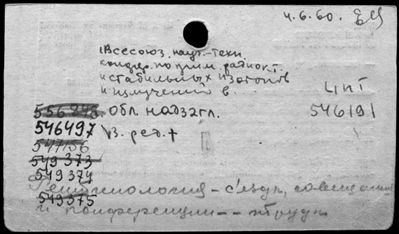 4.6.60.
Всесоюз. научн.-техн.
конфер. по прим. радиоакт.
и стабильных изотопов
и излучений в
546191
обл. надзагл.
556293
546497
\з. ред. +
547156
549373
549374
549375
Рентгенология - съезды, совещания
и конференции -- труды